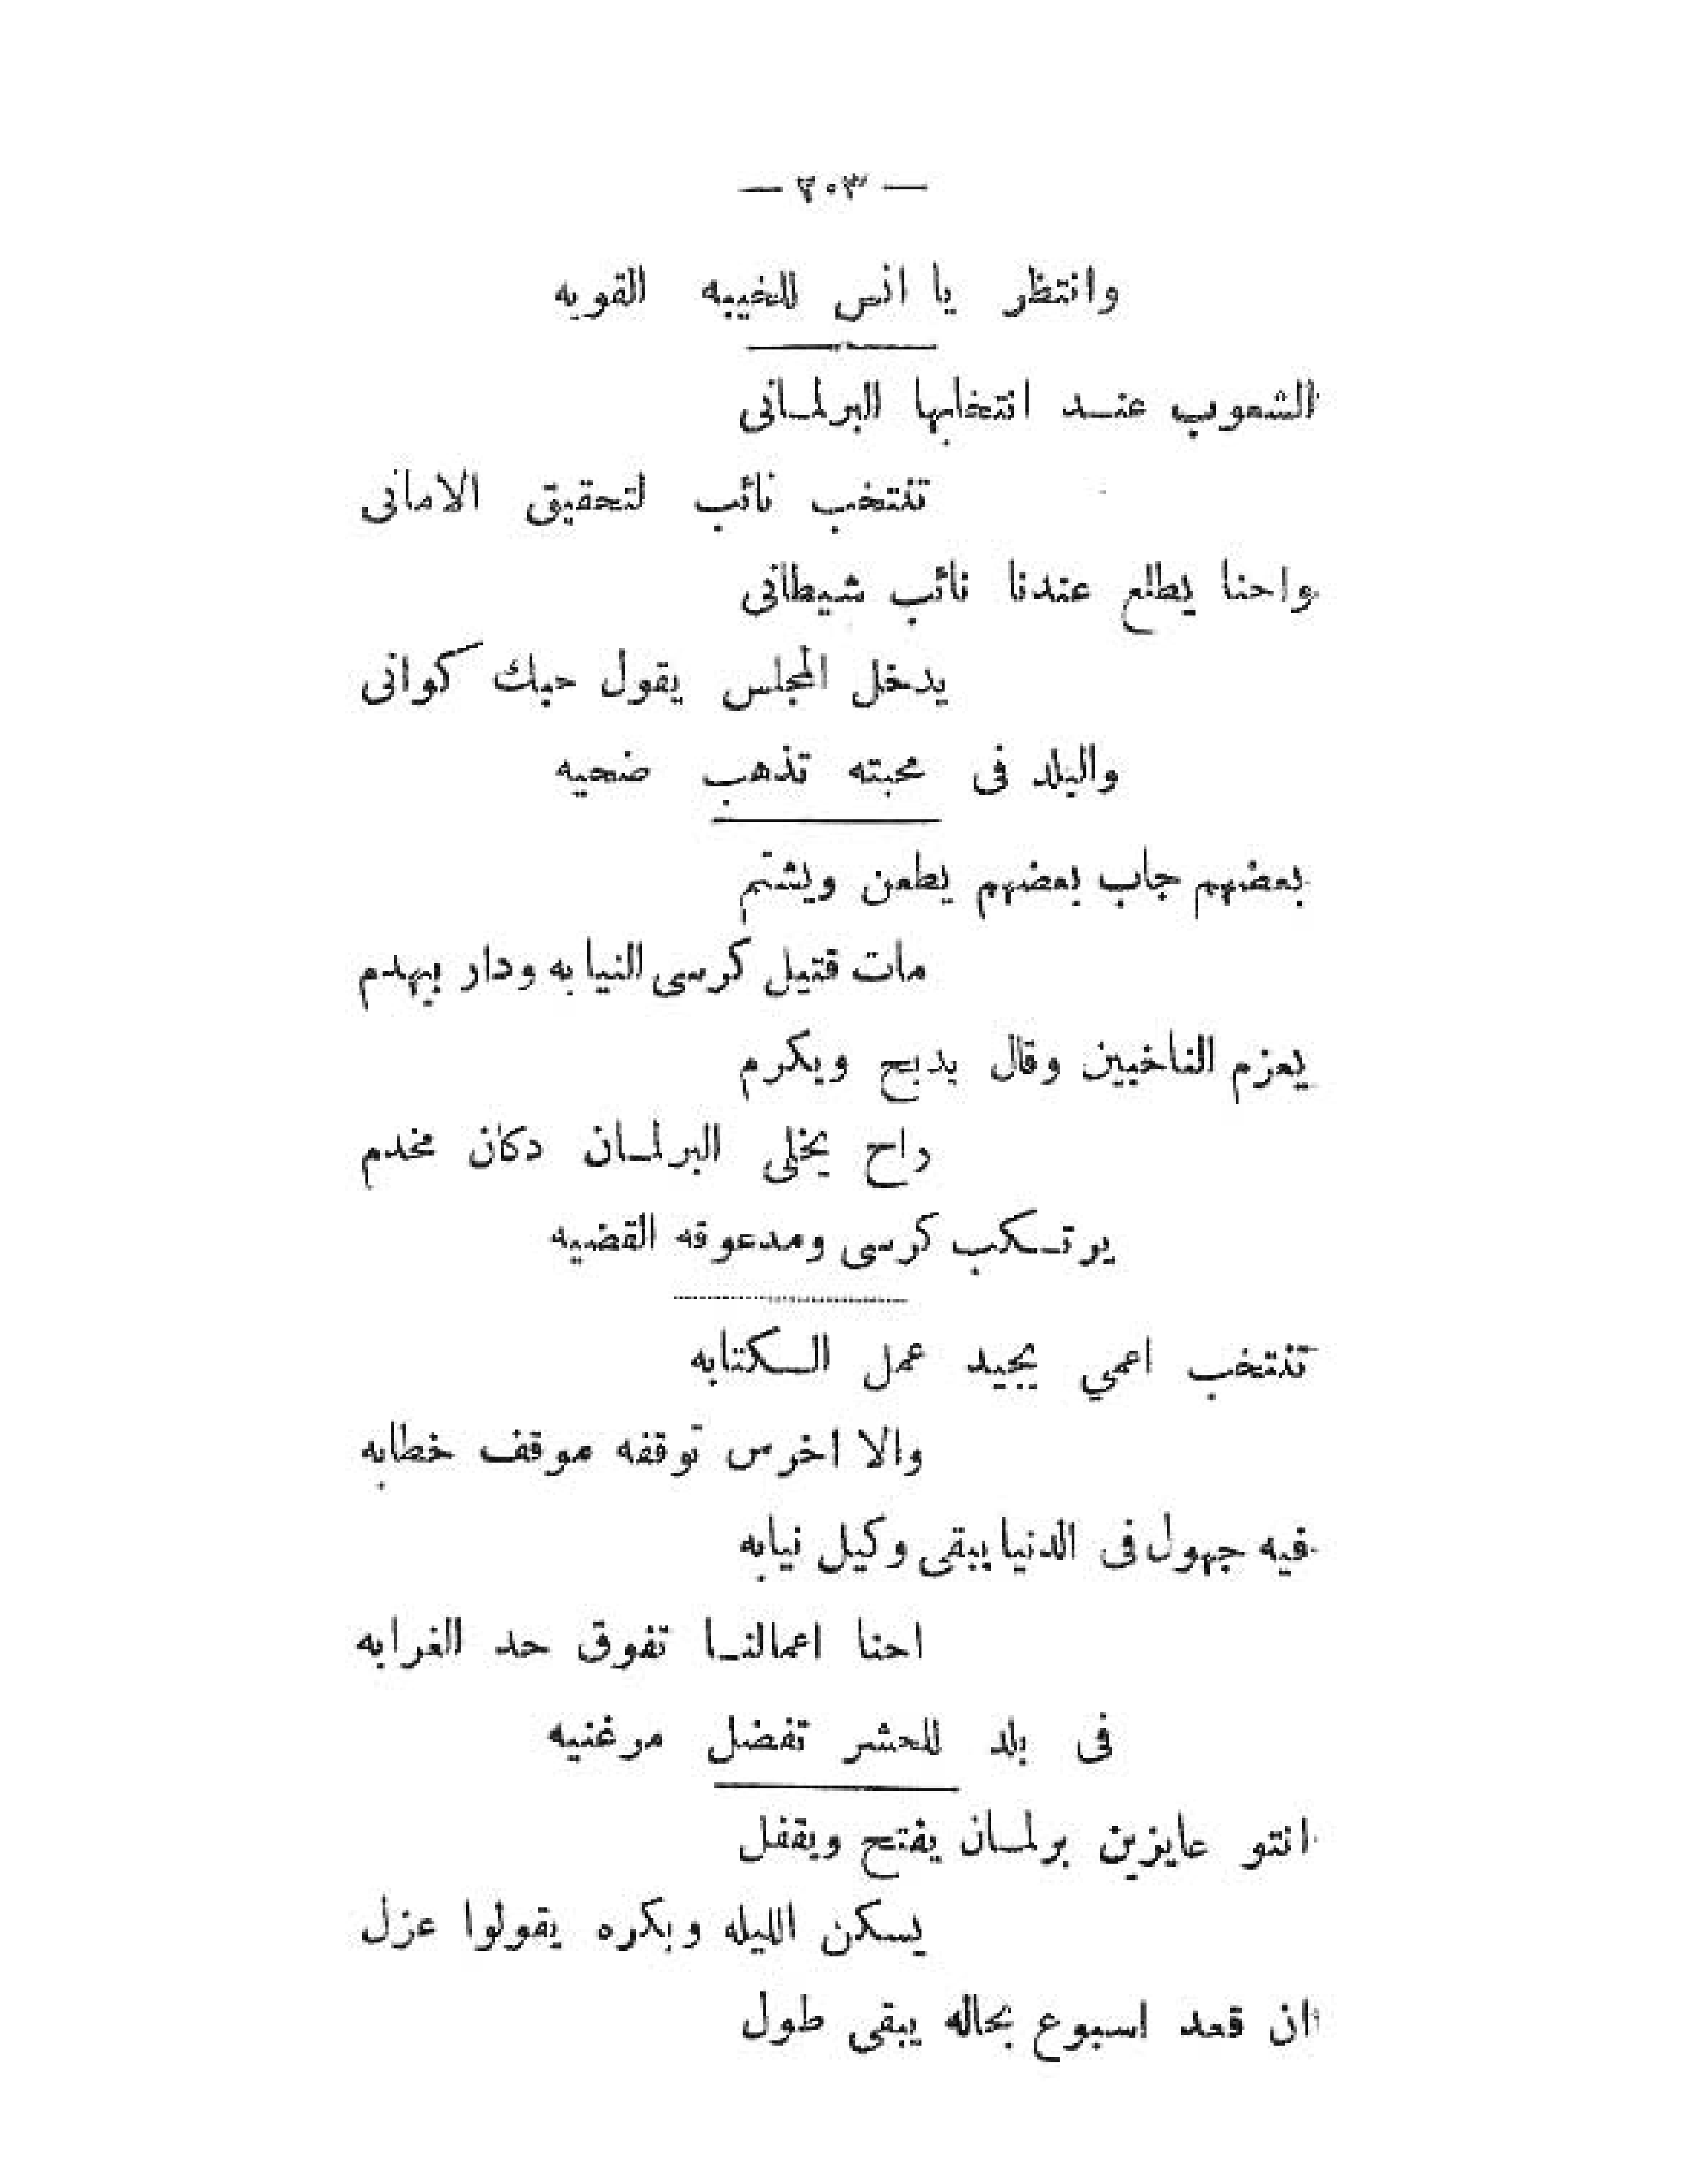 — ٢٠٣ —
وانتظر يا انس للخيبه القويه
الشعوب عند انتخابها البرلمانى
تنتخب نائب لتحقيق الامانى
واحنا يطلع عندنا نائب شيطانى
يدخل المجلس يقول حبك كوانى
والبلد فى محبته تذهب ضحيه
بعضهم جاب بعضهم يطعن ويشتم
مات قتيل كرسى النيابه ودار بيهدم
يعزم الناخبين وقال يدبح ويكرم
راح يخلى البرلمان دكان مخدم
يرتكب كرسى ومدعوقه القضيه
تنتخب اعمي يجيد عمل الكتابه
والا اخرس توقفه موقف خطابه
فيه جهول فى الدنيا يبقى وكيل نيابه
احنا اعمالنا تفوق حد الغرابه
فى بلد للحشر تفضل مرغنيه
انتو عايزين برلمان يفتح ويقفل
يسكن الليله وبكره يقولوا عزل
ان قعد اسبوع بحاله يبقى طول